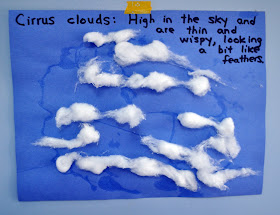 Cirrus clouds: High in the sky and
are thin and
wispy, looking
a bit like
feathers.